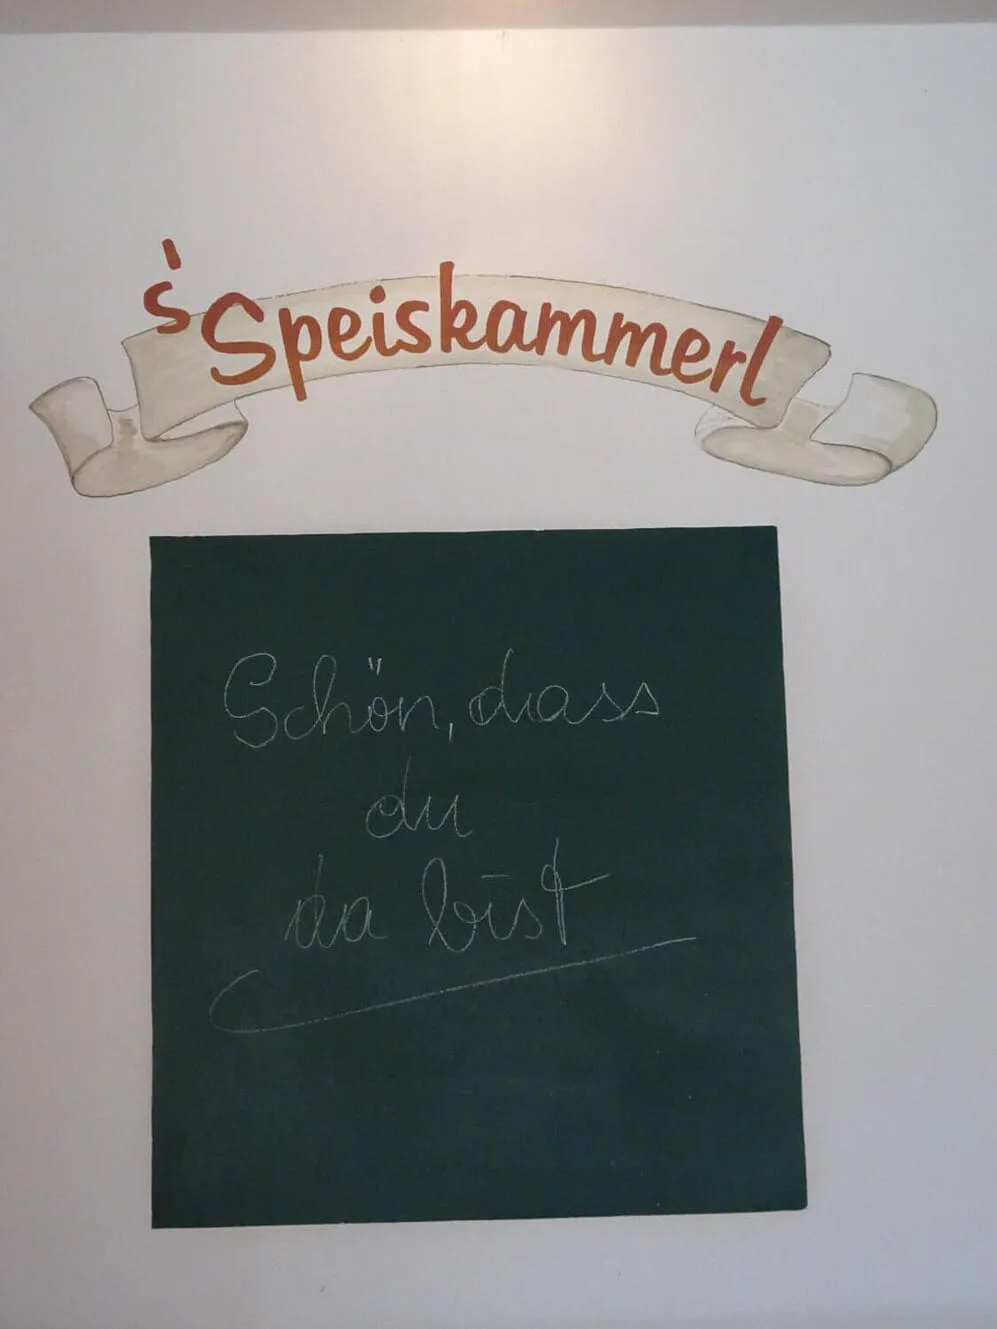 s' Speiskammerl
Schön, dass
du
da bist